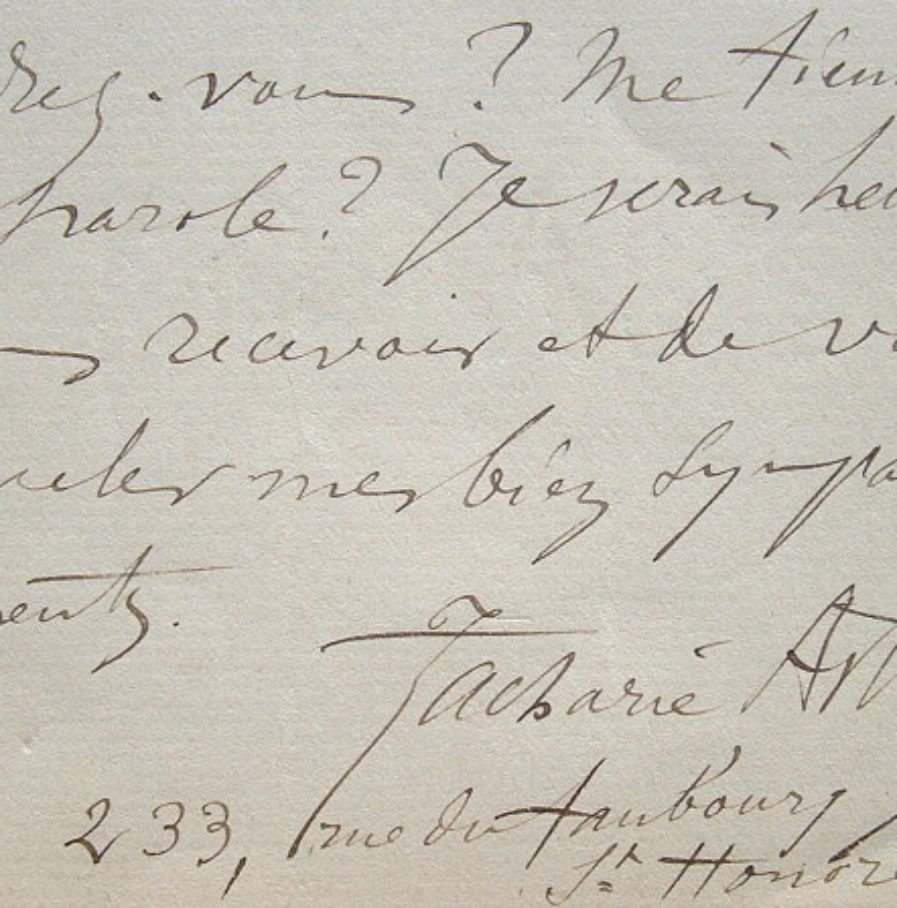 drez-vous ? Me tien
parole ? Je serais heu
s recevoir et de vo
ueler mes bien sympa
ments.
Zacharie Ast
233, rue du faubourg
St Honoré